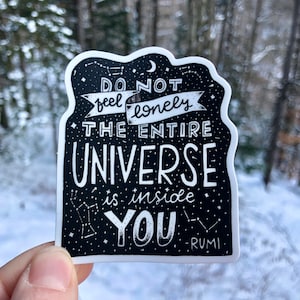 DO NOT
feel lonely
THE ENTIRE
UNIVERSE
is inside
YOU
-RUMI